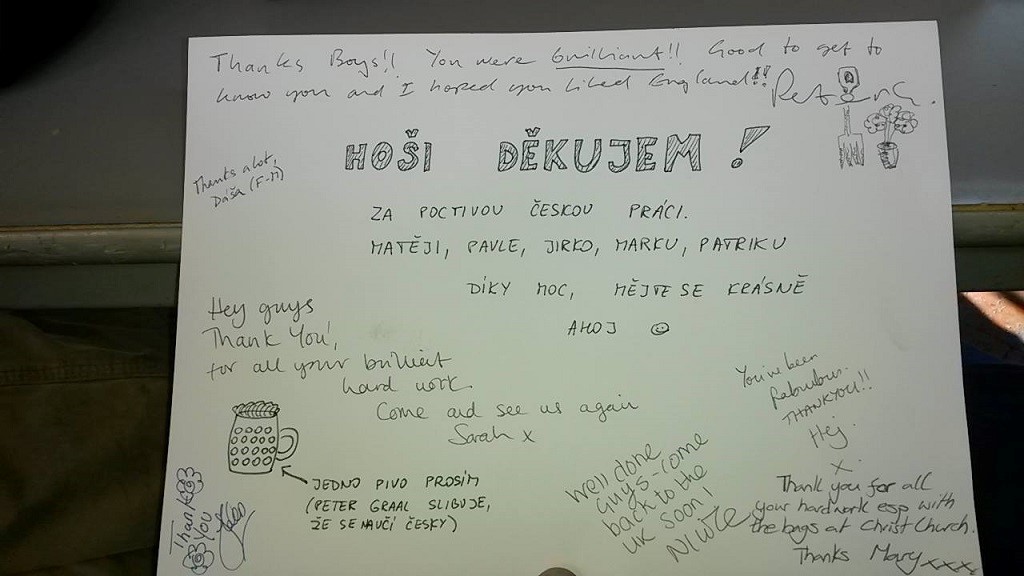 Thanks Boys!! You were brilliant!! Good to get to
know you and I hoped you liked England!!
HOŠI DĚKUJEM!
Thanks a lot,
Dáša (F-M)
ZA POCTIVOU ČESKOU PRÁCI.
MATĚJI, PAVLE, JIRKO, MARKU, PATRIKU
DÍKY MOC, MĚJTE SE KRÁSNĚ
AHOJ ☺
Hey guys
Thank You!,
for all your brilliant
hard work.
Come and see us again
Sarah x
JEDNO PIVO PROSÍM
(PETER GRAAL SLIBUJE,
ŽE SE NAUČÍ ČESKY)
Thank
You
Well done
guys - come
back to the
UK soon!
You've been
Fabulous.
THANKYOU!!
x.
Thank you for all
your hardwork esp with
the bags at Christ Church.
Thanks Mary xxxx